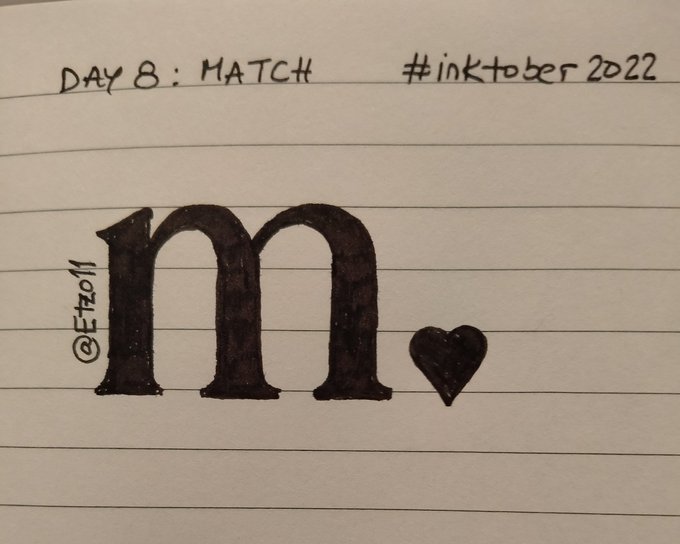 DAY 8: MATCH #inktober 2022
@Etzo11
m.